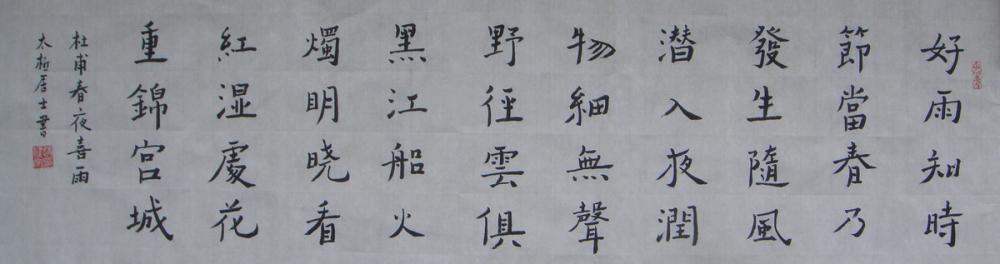 好雨知時
節當春乃
發生隨風
潜入夜潤
物細無聲
野徑雲俱
黑江船火
燭明晓看
紅湿處花
重錦宮城
杜甫春夜喜雨
太極居士書